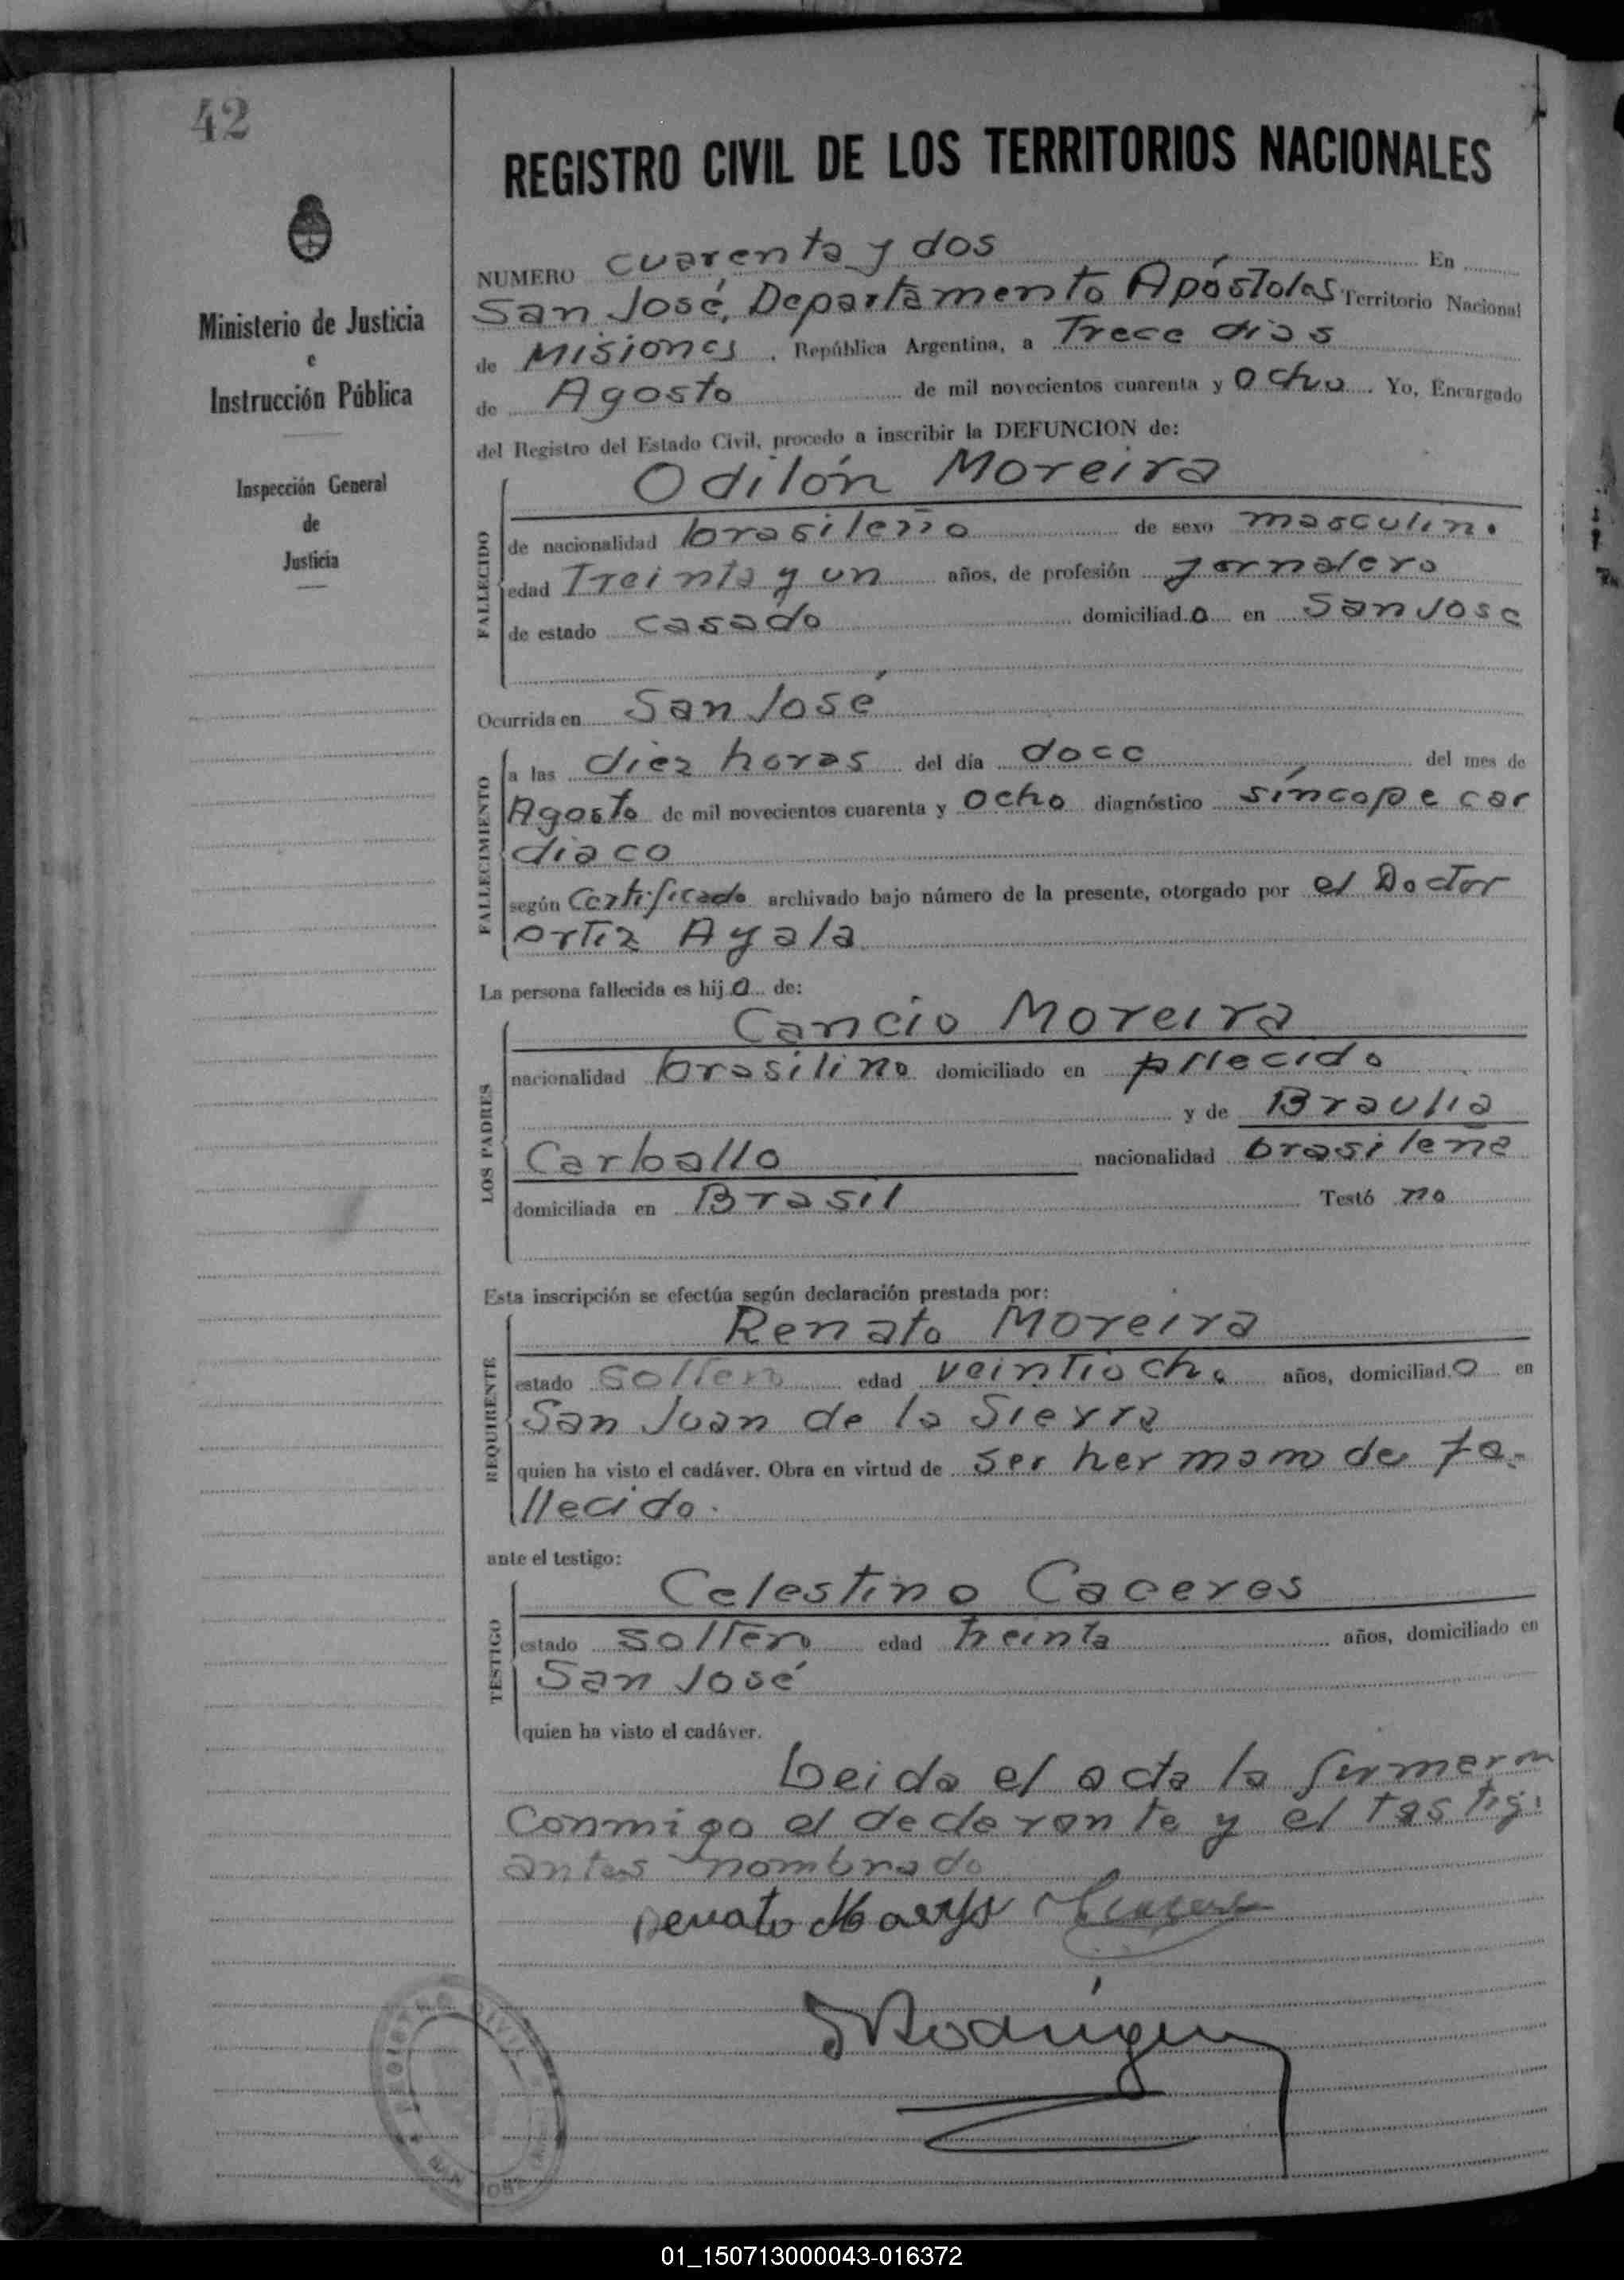 42
REGISTRO CIVIL DE LOS TERRITORIOS NACIONALES
Ministerio de Justicia
e
Instrucción Pública
Inspección General
de
Justicia
NUMERO cuarenta y dos En
San José, Departamento Apóstoles Territorio Nacional
de Misiones, República Argentina, a Trece dias
de Agosto de mil novecientos cuarenta y ocho. Yo, Encargado
del Registro del Estado Civil, procedo a inscribir la DEFUNCION de:
Odilón Moreira
FALLECIDO
de nacionalidad brasileño de sexo masculino
edad Treinta y un años, de profesión jornalero
de estado casado domiciliad.o en San Jose
Ocurrida en San José
FALLECIMIENTO
a las diez horas del día doce del mes de
Agosto de mil novecientos cuarenta y ocho diagnóstico síncope car
diaco
según Certificado archivado bajo número de la presente, otorgado por el Doctor
Ortiz Ayala
La persona fallecida es hij.o de:
LOS PADRES
Cancio Moreira
nacionalidad brasilino domiciliado en fallecido
y de Braulia
Carballo nacionalidad brasileña
domiciliada en Brasil Testó no
Esta inscripción se efectúa según declaración prestada por:
REQUIRENTE
Renato Moreira
estado soltero edad veintiocho años, domiciliad.o en
San Juan de la Sierra
quien ha visto el cadáver. Obra en virtud de ser hermano de fa-
llecido.
ante el testigo:
TESTIGO
Celestino Caceres
estado soltero edad treinta años, domiciliado en
San José
quien ha visto el cadáver.
Leida el acta la firmaron
conmigo el declarante y el testigo
antes nombrado
Renato
Rodríguez
REGISTRO CIVIL
SAN JOSE
01_150713000043-016372